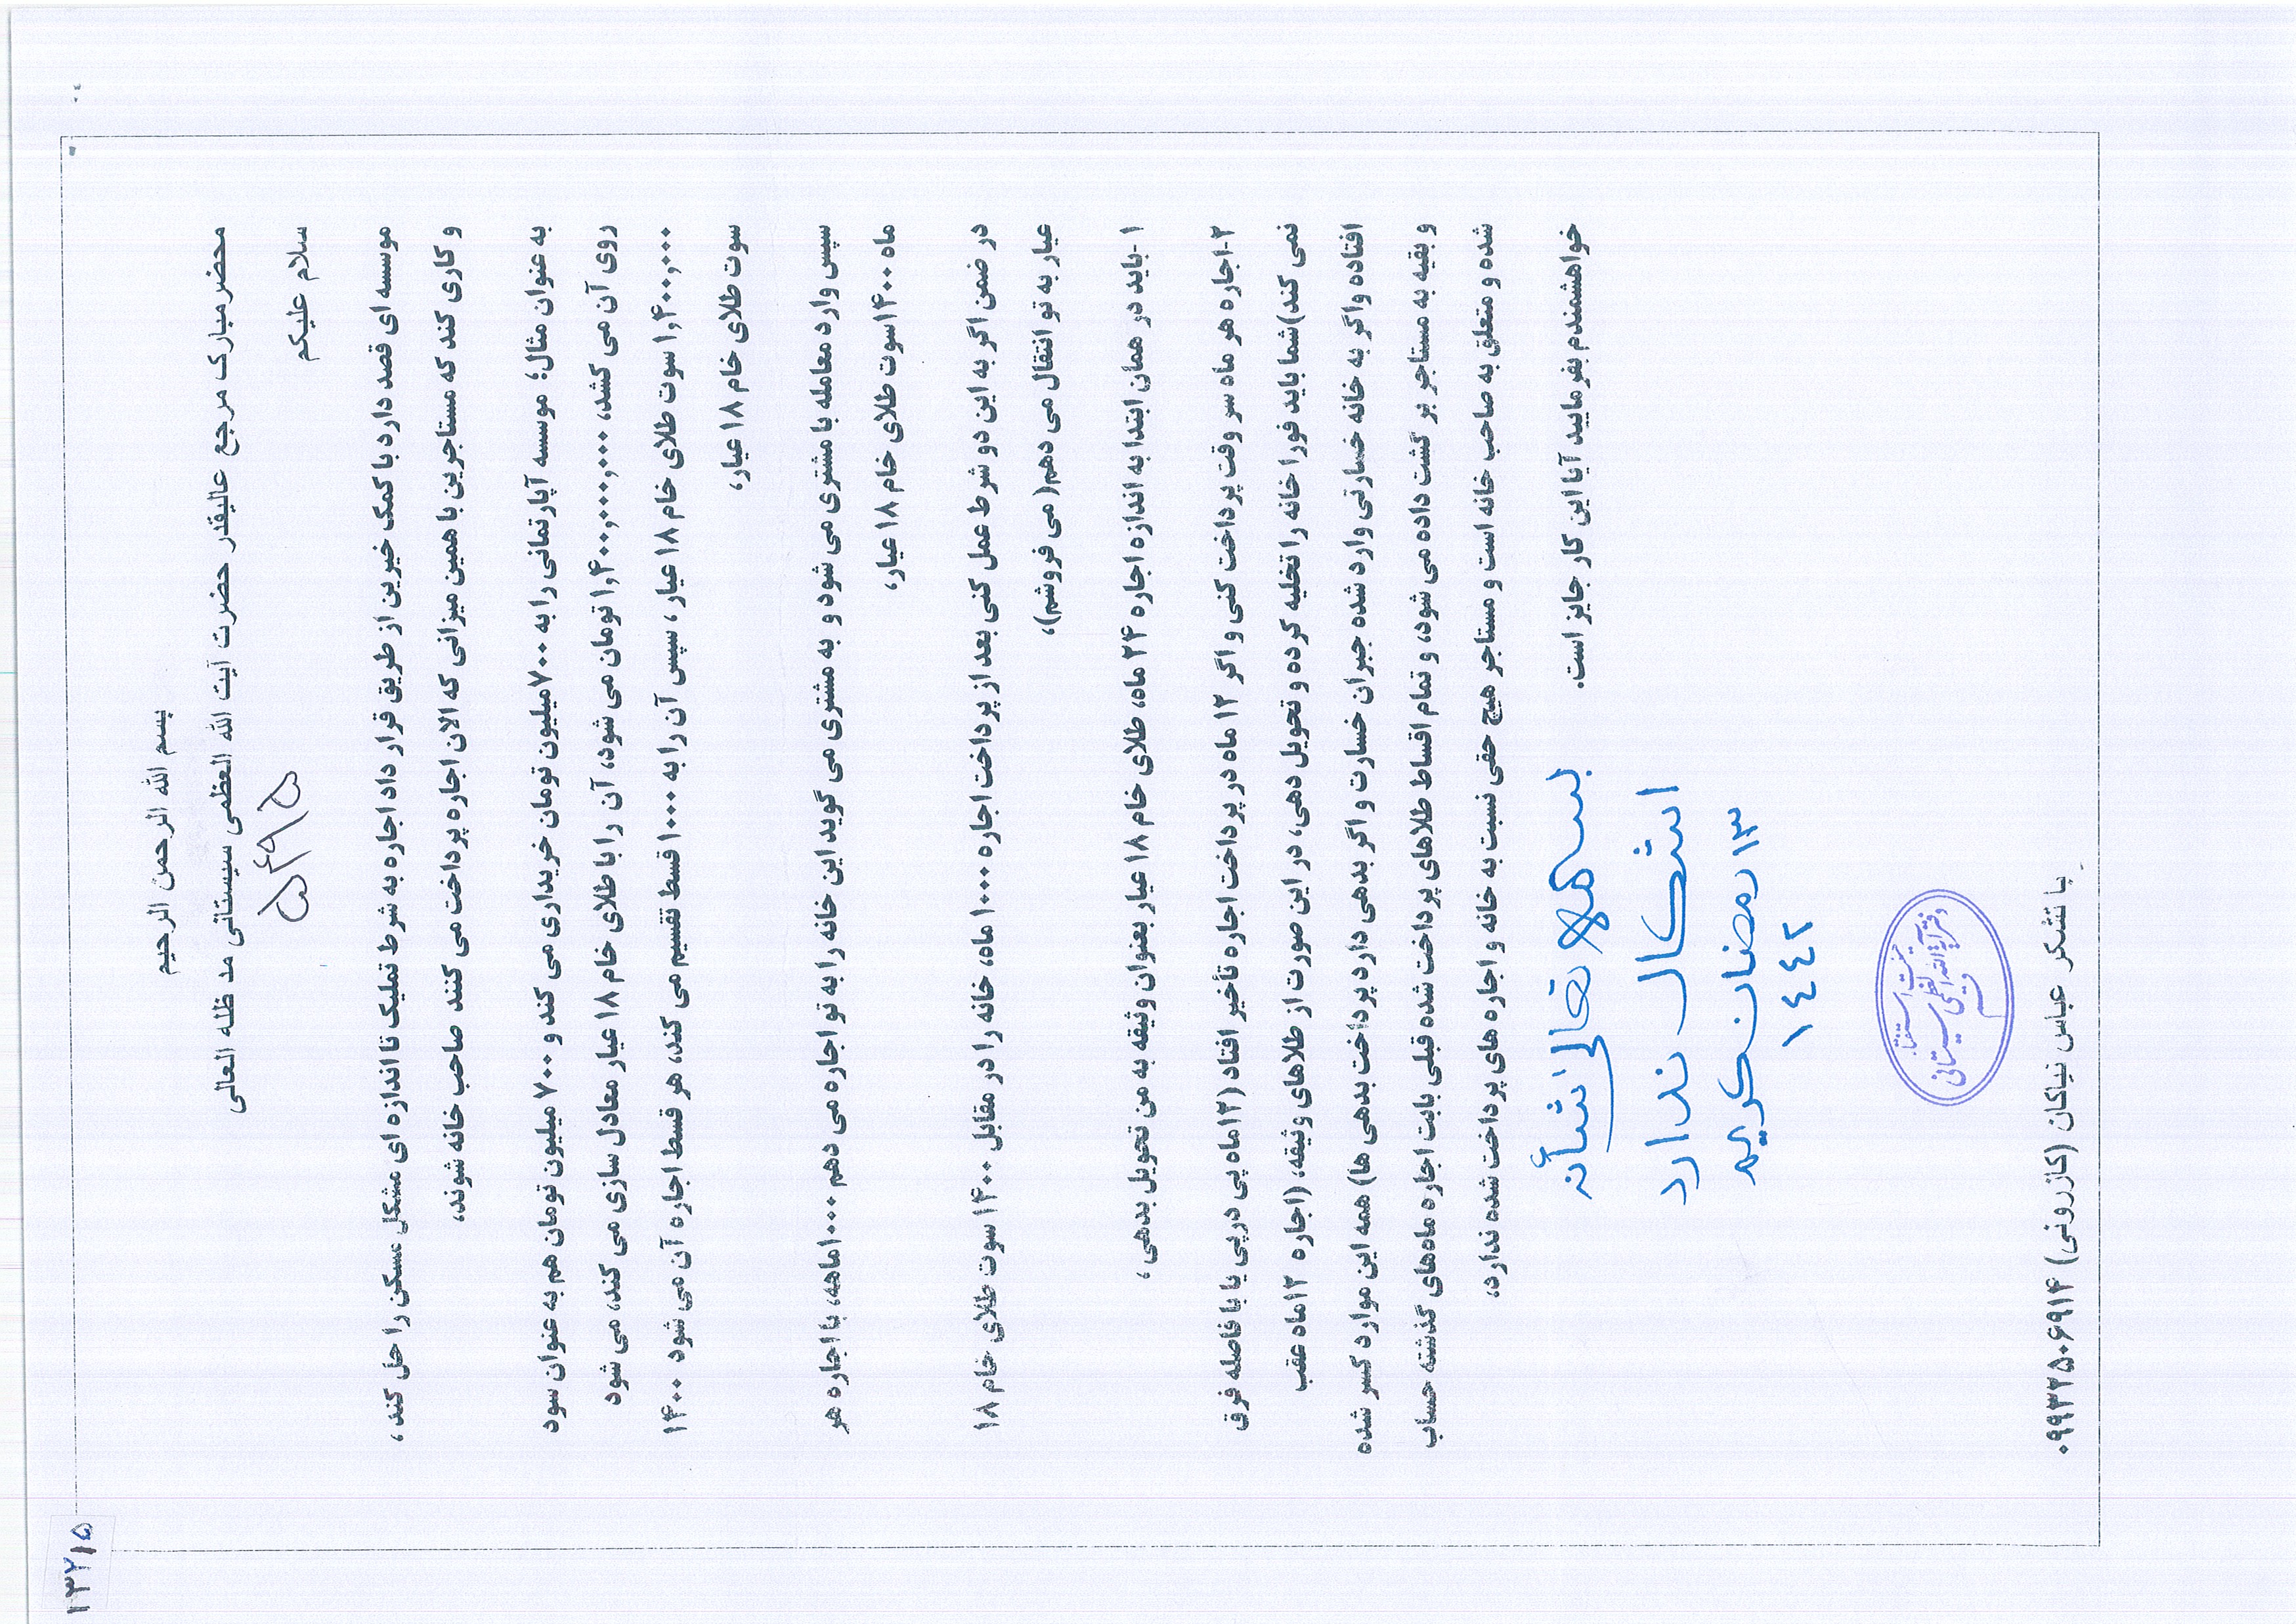 ۱۳۲۱۵
بسم الله الرحمن الرحیم
محضر مبارک مرجع عالیقدر حضرت آیت الله العظمی سیستانی مد ظله العالی
سلام علیکم
موسسه ای قصد دارد با کمک خیرین از طریق قرار داد اجاره به شرط تملیک تا اندازه ای مشکل مسکن را حل کند،
و کاری کند که مستاجرین با همین میزانی که الان اجاره پرداخت می کنند صاحب خانه شوند،
به عنوان مثال؛ موسسه آپارتمانی را به ۷۰۰میلیون تومان خریداری می کند و ۷۰۰ میلیون تومان هم به عنوان سود
روی آن می کشد، ۱,۴۰۰,۰۰۰,۰۰۰ تومان می شود، آن را با طلای خام ۱۸ عیار معادل سازی می کند، می شود
۱,۴۰۰,۰۰۰ سوت طلای خام ۱۸ عیار، سپس آن را به ۱۰۰۰ قسط تقسیم می کند، هر قسط اجاره آن می شود ۱۴۰۰
سوت طلای خام ۱۸ عیار،
سپس وارد معامله با مشتری می شود و به مشتری می گوید این خانه را به تو اجاره می دهم ۱۰۰۰ماهه، با اجاره هر
ماه ۱۴۰۰سوت طلای خام ۱۸ عیار،
در ضمن اگر به این دو شرط عمل کنی بعد از پرداخت اجاره ۱۰۰۰ ماه، خانه را در مقابل ۱۴۰۰ سوت طلای خام ۱۸
عیار به تو انتقال می دهم( می فروشم)،
۱-باید در همان ابتدا به اندازه اجاره ۲۴ ماه، طلای خام ۱۸ عیار بعنوان وثیقه به من تحویل بدهی ،
۲-اجاره هر ماه سر وقت پرداخت کنی و اگر ۱۲ ماه در پرداخت اجاره تأخیر افتاد (۱۲ماه پی در پی یا با فاصله فرق
نمی کند)شما باید فورا خانه را تخلیه کرده و تحویل دهی، در این صورت از طلاهای وثیقه، (اجاره ۱۲ماه عقب
افتاده واگر به خانه خسارتی وارد شده جبران خسارت و اگر بدهی دارد پرداخت بدهی ها) همه این موارد کسر شده
و بقیه به مستاجر بر گشت داده می شود، و تمام اقساط طلاهای پرداخت شده قبلی بابت اجاره ماه‌های گذشته حساب
شده و متعلق به صاحب خانه است و مستاجر هیچ حقی نسبت به خانه و اجاره های پرداخت شده ندارد،
خواهشمندم بفرمایید آیا این کار جایز است.
بسمه تعالی شأنه
اشکال ندارد
۱۳ رمضان کریم
١٤٤٢
دفتر آیة الله العظمی سیستانی
با تشکر عباس نیاکان (کازرونی) ۰۹۹۳۲۵۰۶۹۱۴